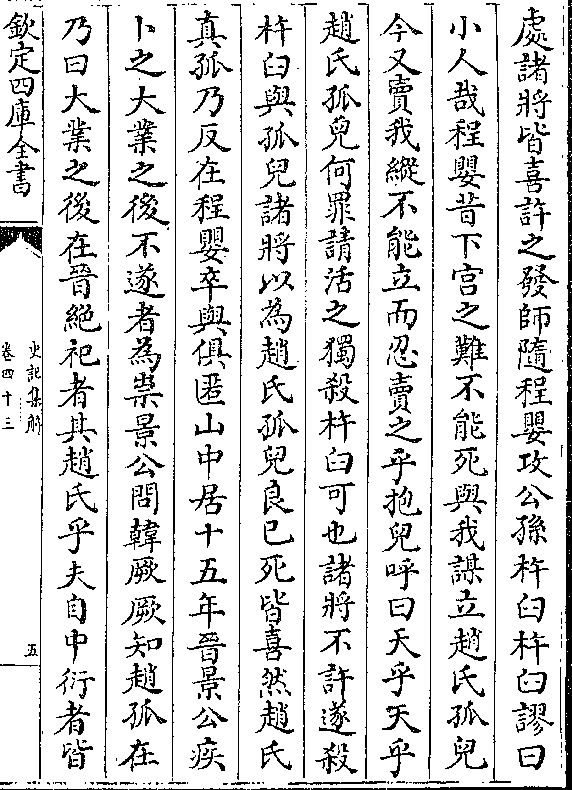 處諸將皆喜許之發師隨程嬰攻公孫杵臼杵臼謬曰
小人哉程嬰昔下宫之難不能死與我謀立趙氏孤兒
今又賣我縱不能立而忍賣之乎抱兒呼曰天乎天乎
趙氏孤兒何罪請活之獨殺杵臼可也諸將不許遂殺
杵臼與孤兒諸將以為趙氏孤兒良已死皆喜然趙氏
真孤乃反在程嬰卒與俱匿山中居十五年晉景公疾
卜之大業之後不遂者為祟景公問韓厥厥知趙孤在
乃曰大業之後在晉絶祀者其趙氏乎夫自中衍者皆
欽定四庫全書
史記集解
卷四十三
五